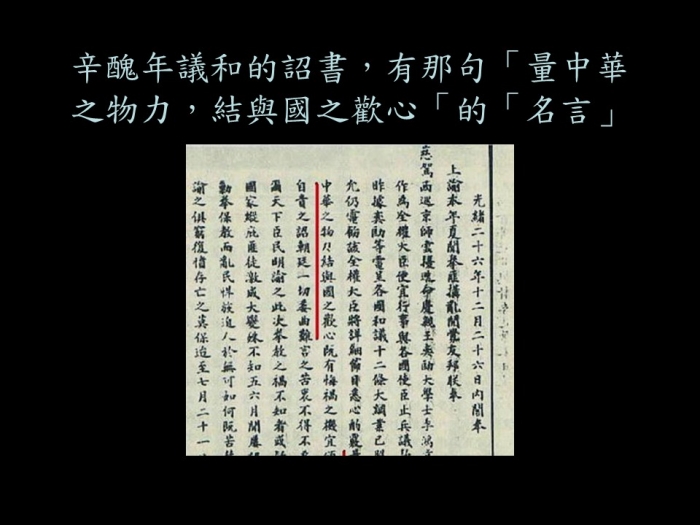 辛醜年議和的詔書，有那句「量中華
之物力，結與國之歡心「的「名言」
光緒二十六年十二月二十六日內閣奉
上諭本年夏間拳匪搆亂開釁友邦朕奉
慈駕西巡京師雲擾迭命慶親王奕劻大學士李鴻
作為全權大臣便宜行事與各國使臣止兵議
昨據奕劻等電呈各國和議十二條大綱業已照
允仍電飭該全權大臣將詳細節目悉心酌覈量
中華之物力結與國之歡心既有悔禍之機宜頒
自責之詔朝廷一切委曲難言之苦衷不得不
爾天下臣民明諭之此次拳教之禍不知者咸
國家縱庇匪徒激成大變殊不知五六月間屢
勦拳保教而亂民悍族迫人於無可如何既苦
諭之俱窮復憤存亡之莫保迨至七月二十一